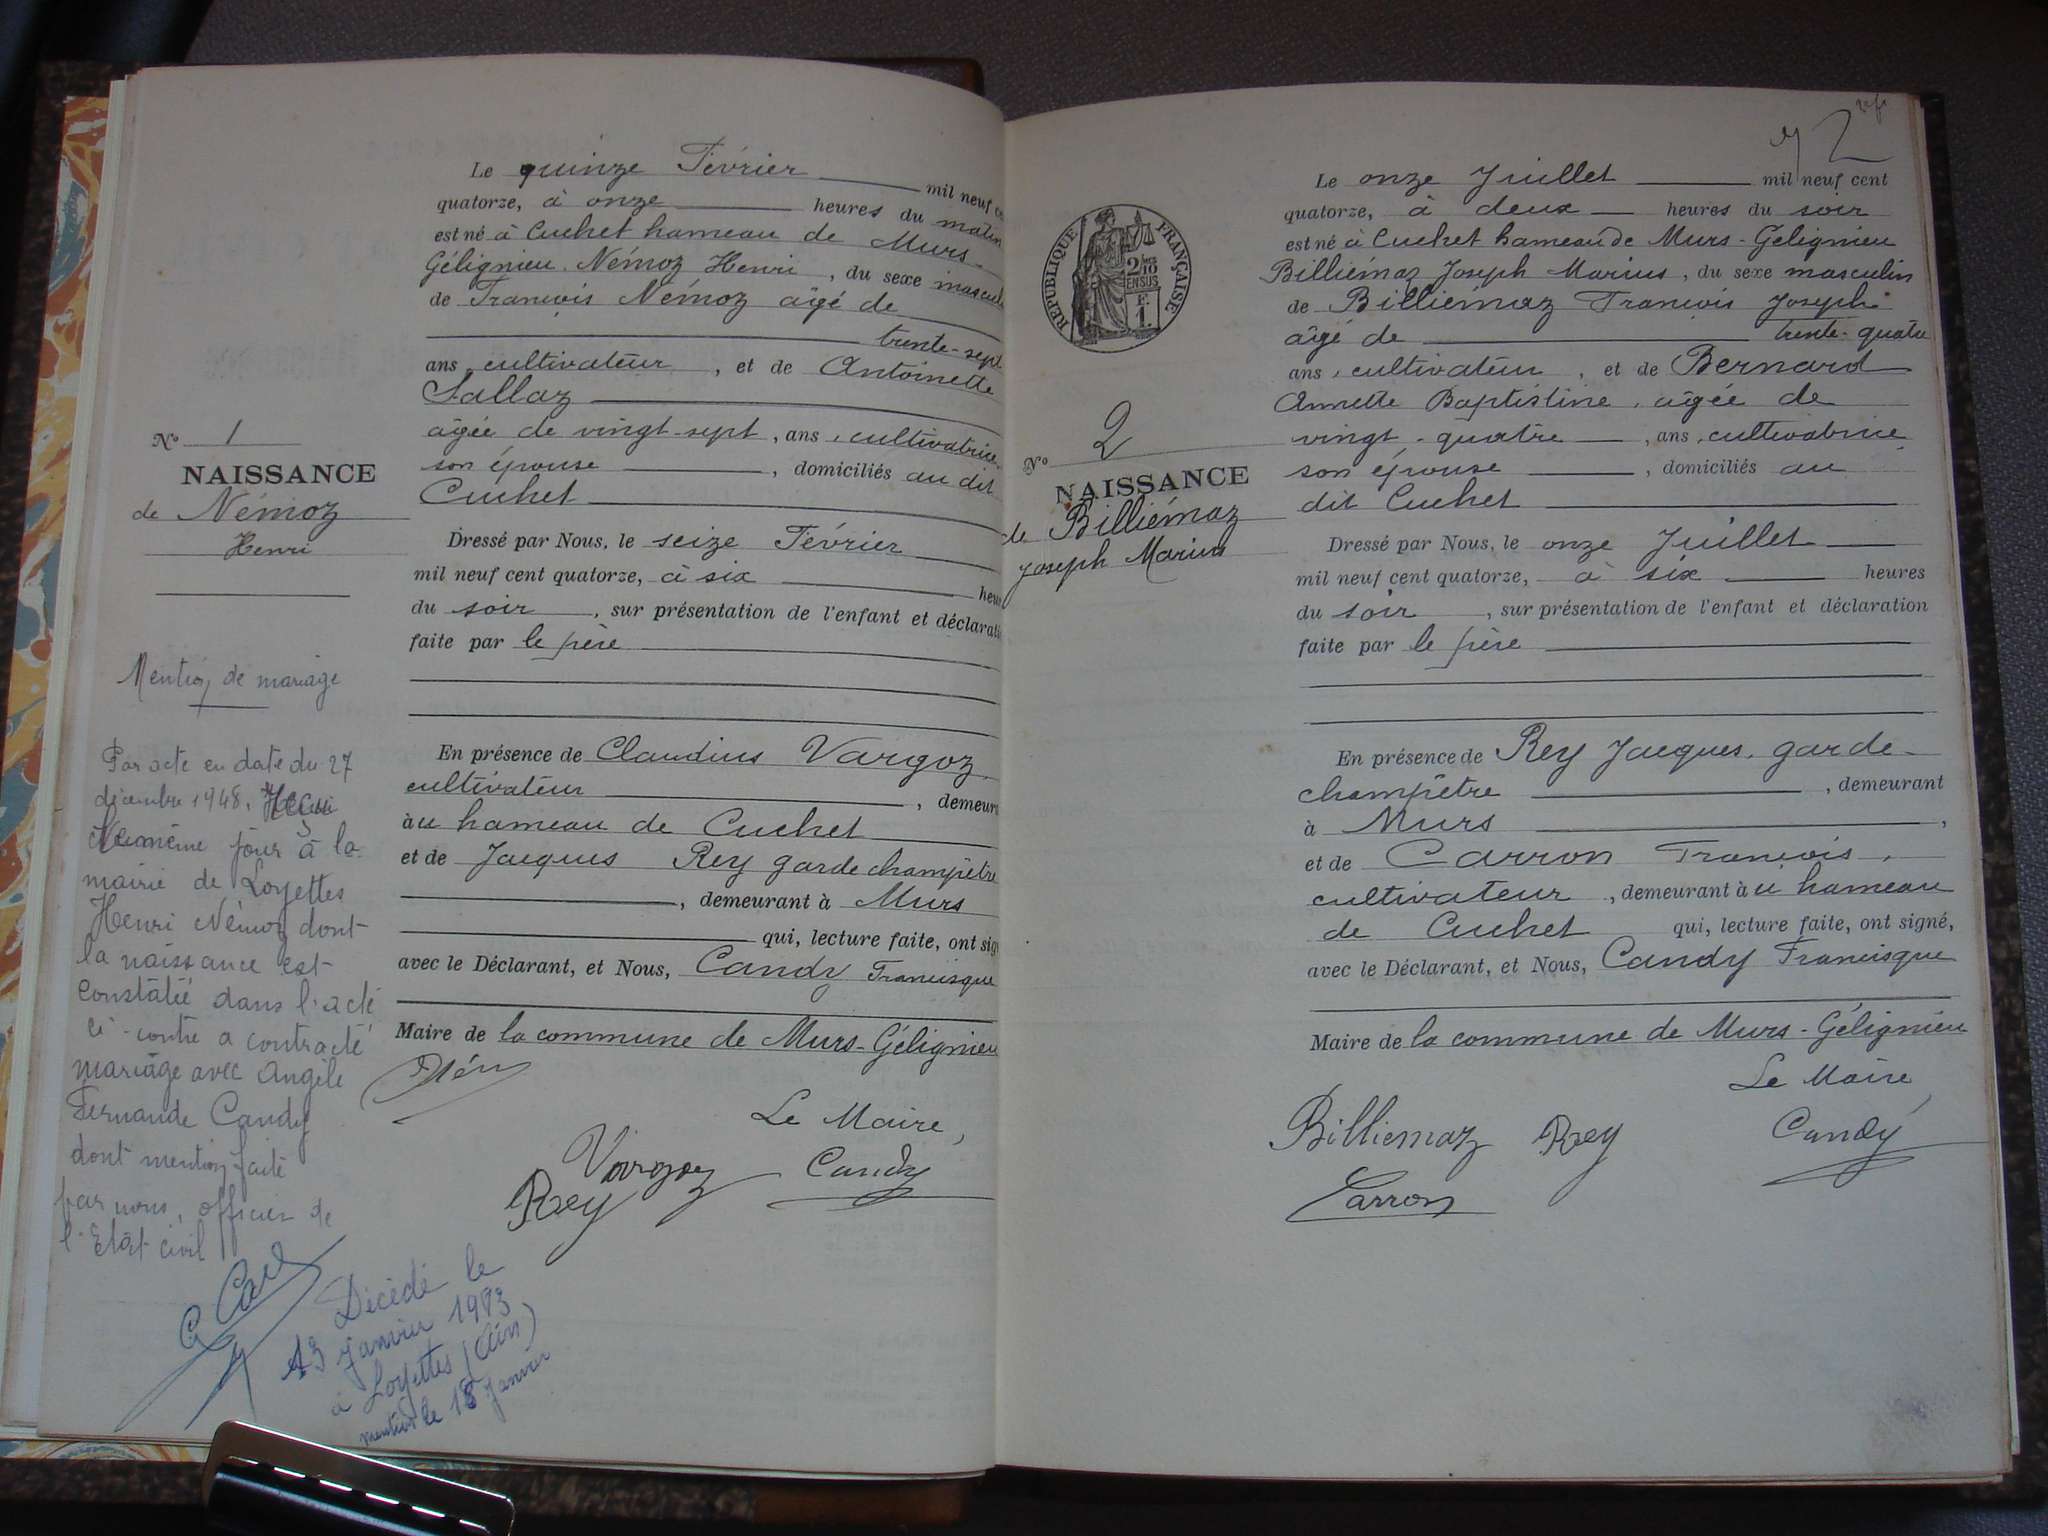 Le quinze Février mil neuf
quatorze, à onze heures du matin
est né à Cuchet hameau de Murs-
Gélignieu. Némoz Henri, du sexe mascul
de François Némoz âgé de
trente-sept
ans, cultivateur, et de Antoinette
Sallaz
âgée de vingt-sept, ans, cultivatrice,
son épouse, domiciliés au dit
Cuchet
Dressé par Nous, le seize Février
mil neuf cent quatorze, à six heur
du soir, sur présentation de l'enfant et déclarati
faite par le père
En présence de Claudius Vargoz
cultivateur, demeura
àu hameau de Cuchet
et de Jacques Rey garde champêtre
, demeurant à Murs
qui, lecture faite, ont sig
avec le Déclarant, et Nous, Candy Francisque
Maire de la commune de Murs-Gélignieu
Le Maire,
Vargoz Candy
Rey
No 1
NAISSANCE
de Némoz
Henri
Mention de mariage
Par acte en date du 27
décembre 1948,
même jour à la
mairie de Loyettes
Henri Némoz dont
la naissance est
constatée dans l'acte
ci-contre a contracté
mariage avec Angèle
Fernande Candy
dont mention faite
par nous, officier de
l'Etat civil
Décédé le
13 janvier 1983
à Loyettes (Ain)
mention le 18 janvier
2
RÉPUBLIQUE FRANÇAISE
2/10 EN SUS
F. 1.
No 2
NAISSANCE
de Billiémaz
Joseph Marius
Le onze Juillet mil neuf cent
quatorze, à deux heures du soir
est né à Cuchet hameau de Murs-Gélignieu
Billiémaz Joseph Marius, du sexe masculin
de Billiémaz François Joseph
âgé de trente-quatre
ans, cultivateur, et de Bernard
Annette Baptistine, âgée de
vingt-quatre, ans, cultivatrice
son épouse, domiciliés au
dit Cuchet
Dressé par Nous, le onze Juillet
mil neuf cent quatorze, à six heures
du soir, sur présentation de l'enfant et déclaration
faite par le père
En présence de Rey Jacques, garde-
champêtre, demeurant
à Murs,
et de Carron François,
cultivateur, demeurant àu hameau
de Cuchet qui, lecture faite, ont signé,
avec le Déclarant, et Nous, Candy Francisque
Maire de la commune de Murs-Gélignieu
Le Maire
Billiemaz Rey Candy
Carron